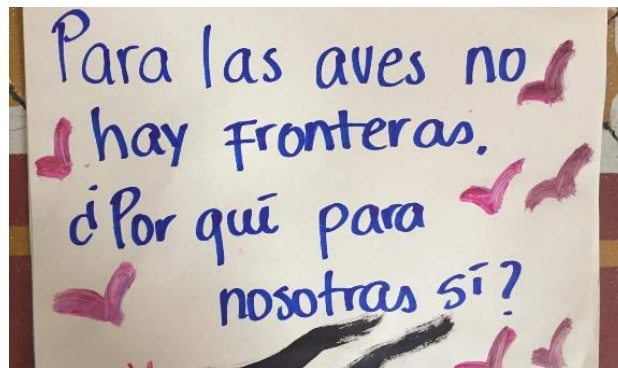 Para las aves no
hay Fronteras.
¿Por qué para
nosotras sí?